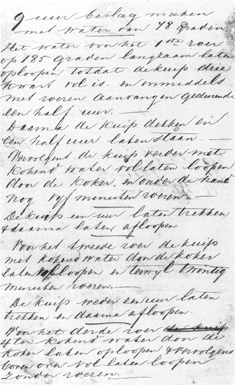 9 uur beslag maken
met water van 78 graden
Het water voor het 1ste roer
op 185 graden langzaam laten
oploopen totdat de kuip drie
kwart vol is en inmiddels
met roeren aanvangen gedurende
een half uur.—
Daarna de kuip dekken en
een half uur laten staan.
Vervolgens de kuip verder met
kokend water vol laten loopen
door de koker, en onder de hand
nog vyf minuten roeren.—
De kuip een uur laten trekken
& daarna laten afloopen
Voor het tweede roer de kuip
met kokend water door de koker
laten oploopen en terwyl twintig
minuten roeren.—
De kuip weder een uur laten
trekken en daarna afloopen
Voor het derde roer de kuip
4 ton kokend water door de
koker laten oploopen & vervolgens
boven over vol laten loopen
zonder roeren.